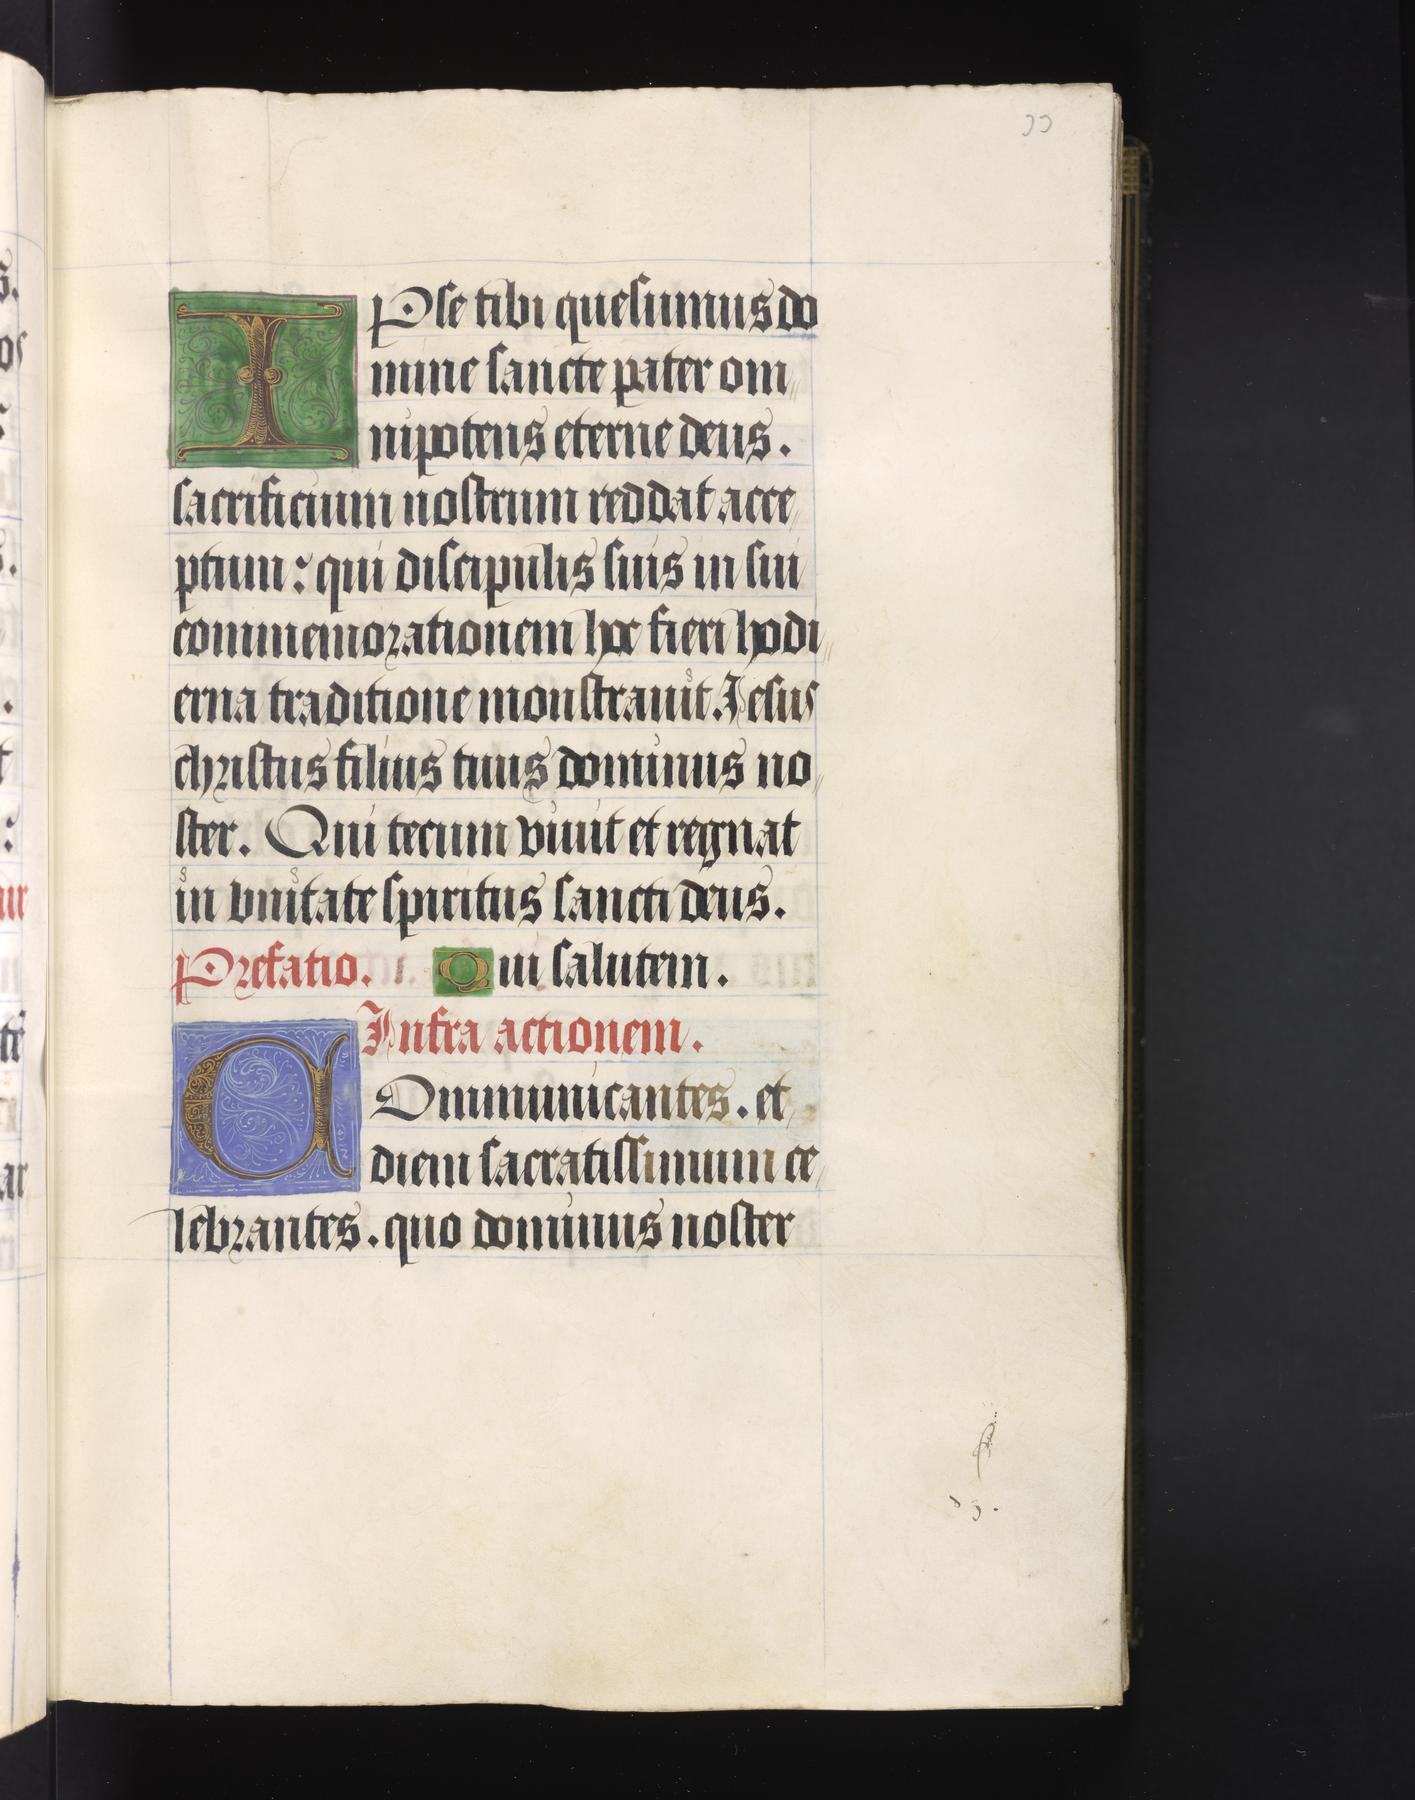 IPse tibi quesumus do
mine sancte pater om
nipotens eterne deus.
sacrificium nostrum reddat acce
ptum: qui discipulis suis in sui
commemorationem hoc fieri hodi
erna traditione monstrauit. Iesus
christus filius tuus dominus no
ster. Qui tecum viuit et regnat
in vnitate spiritus sancti deus.
Prefatio. Qui salutem.
Infra actionem.
COmmunicantes. et
diem sacratissimum ce
lebrantes. quo dominus noster